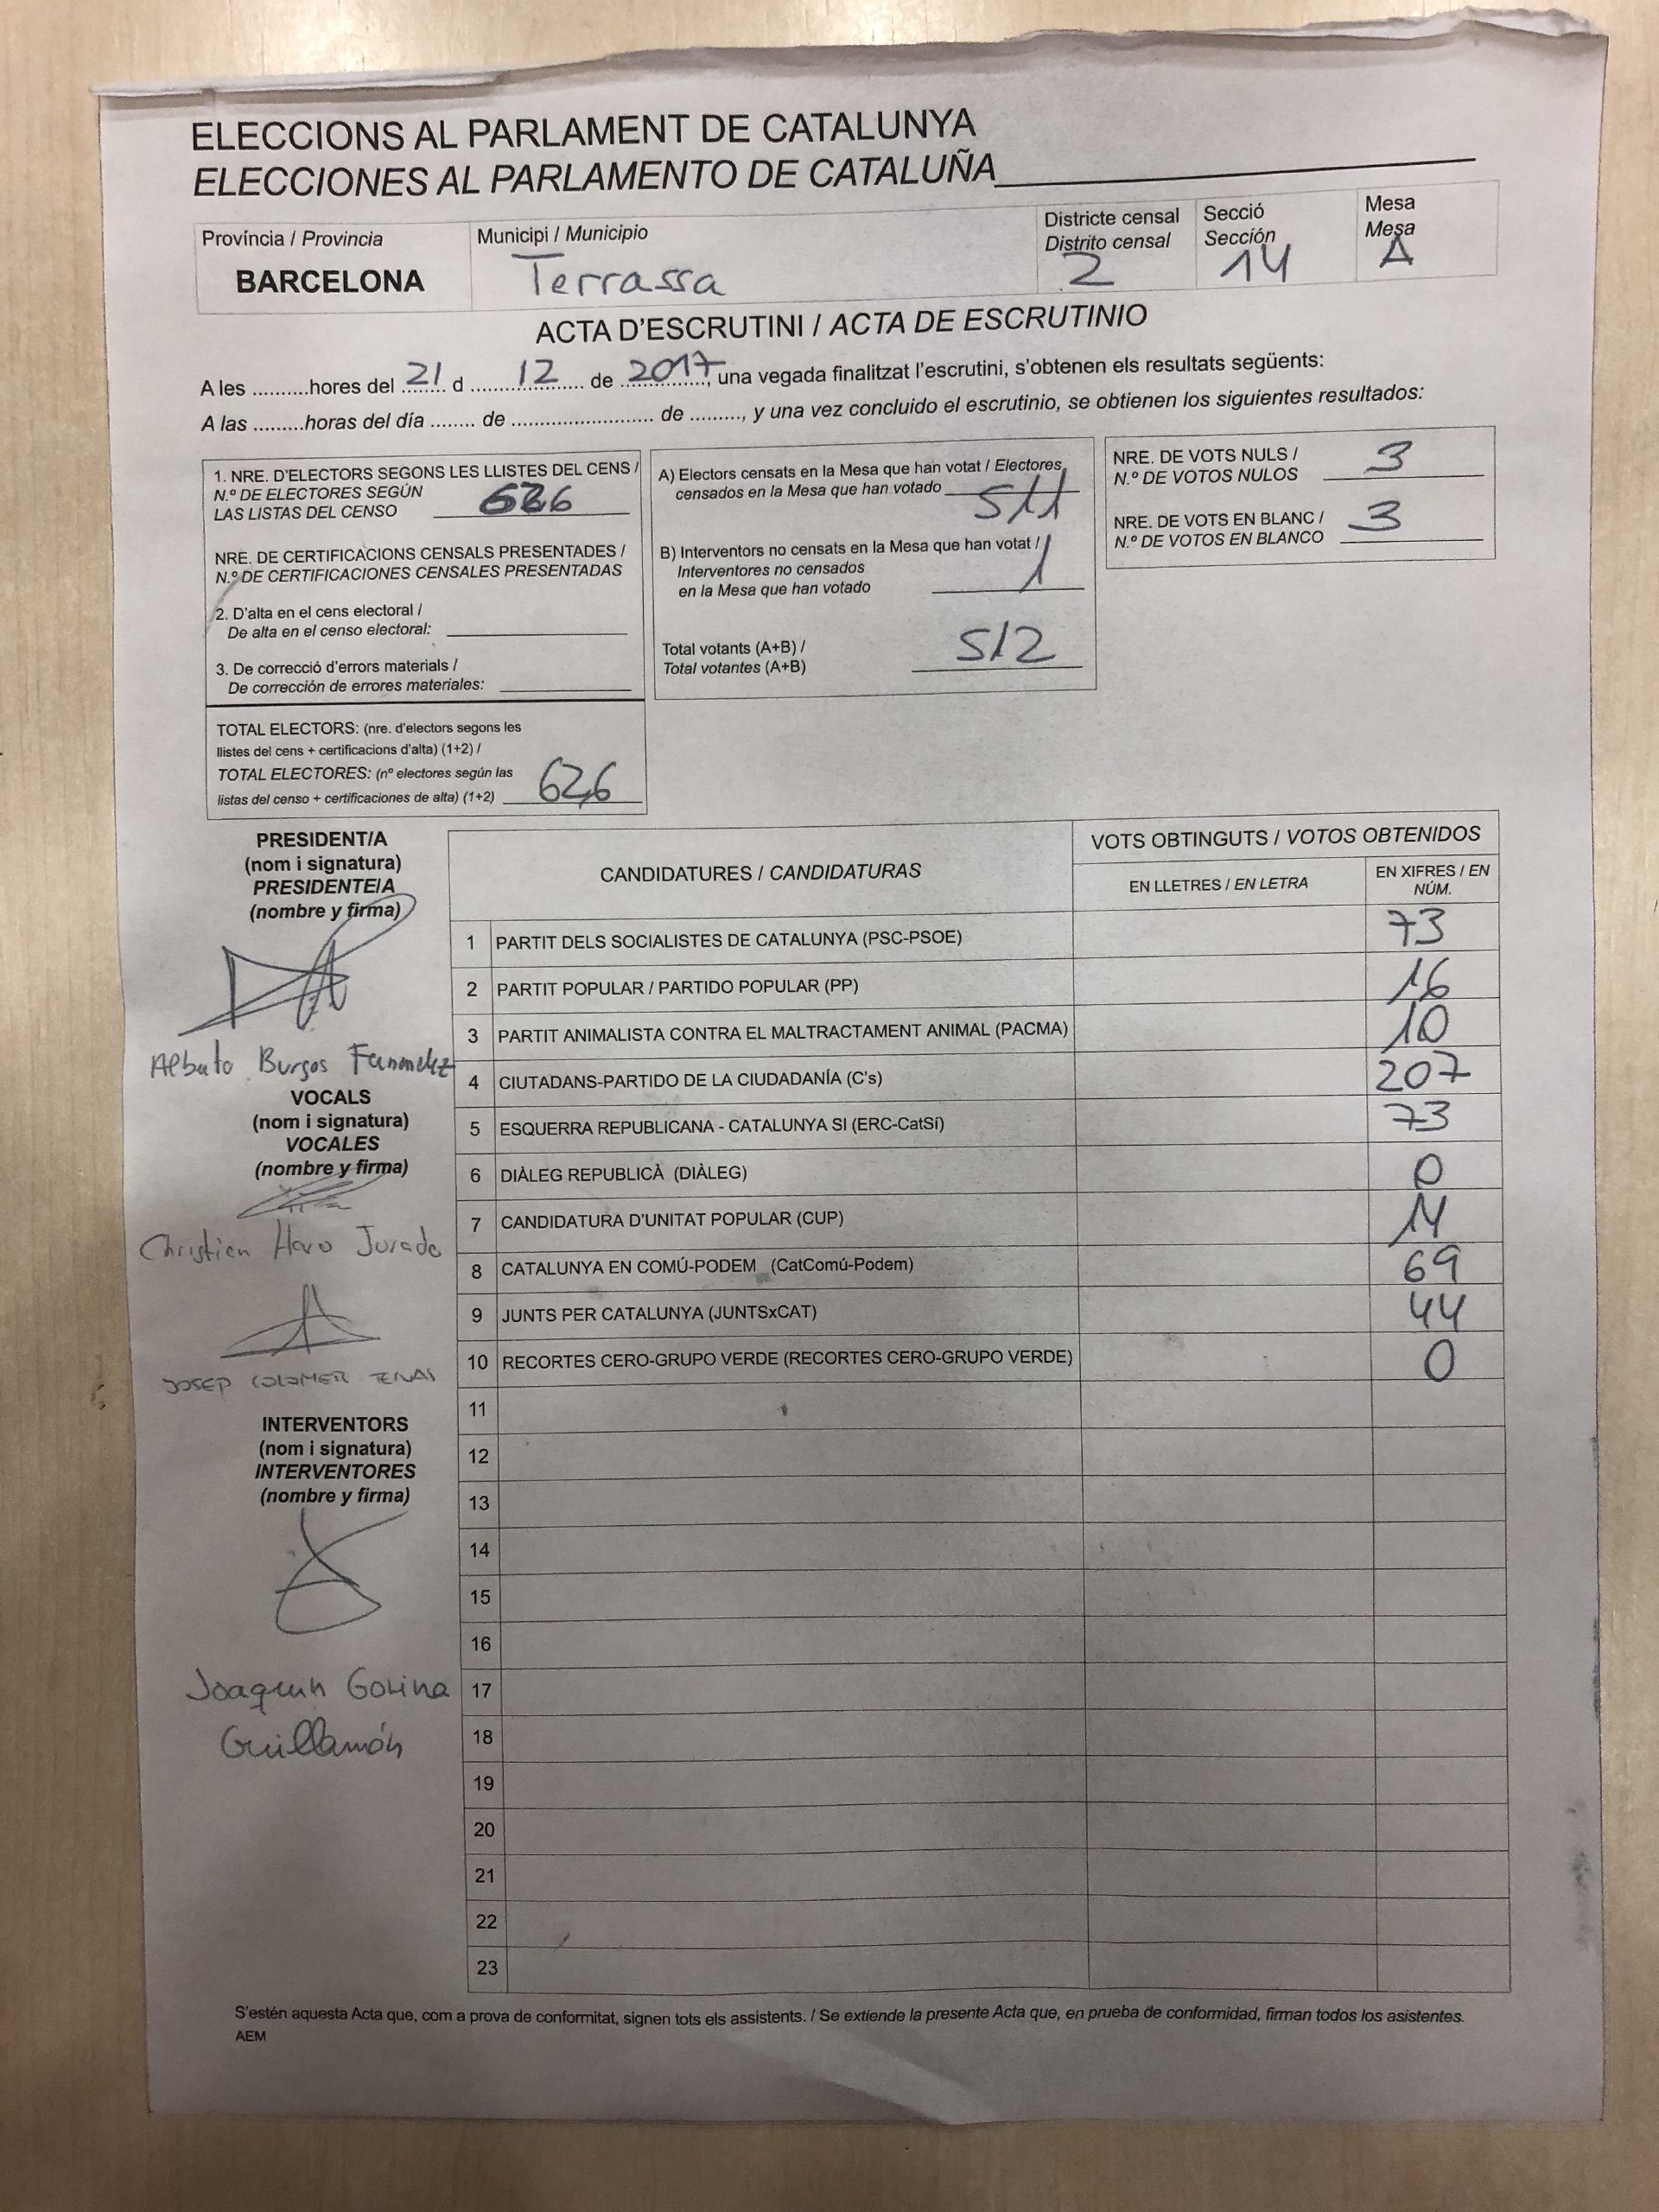 ELECCIONS AL PARLAMENT DE CATALUNYA
ELECCIONES AL PARLAMENTO DE CATALUÑA
Província / Provincia
BARCELONA
Municipi / Municipio
Terrassa
Districte censal
Distrito censal
2
Secció
Sección
14
Mesa
Mesa
A
ACTA D'ESCRUTINI / ACTA DE ESCRUTINIO
A les ..........hores del 21 d 12 de 2017, una vegada finalitzat l'escrutini, s'obtenen els resultats següents:
A las .........horas del día ........ de ......................... de ........., y una vez concluido el escrutinio, se obtienen los siguientes resultados:
1. NRE. D'ELECTORS SEGONS LES LLISTES DEL CENS /
N.º DE ELECTORES SEGÚN
LAS LISTAS DEL CENSO 626
NRE. DE CERTIFICACIONS CENSALS PRESENTADES /
N.º DE CERTIFICACIONES CENSALES PRESENTADAS
2. D'alta en el cens electoral /
De alta en el censo electoral:
3. De correcció d'errors materials /
De corrección de errores materiales:
TOTAL ELECTORS: (nre. d'electors segons les
llistes del cens + certificacions d'alta) (1+2) /
TOTAL ELECTORES: (nº electores según las
listas del censo + certificaciones de alta) (1+2) 626
A) Electors censats en la Mesa que han votat / Electores
censados en la Mesa que han votado 511
B) Interventors no censats en la Mesa que han votat /
Interventores no censados
en la Mesa que han votado 1
Total votants (A+B) /
Total votantes (A+B) 512
NRE. DE VOTS NULS /
N.º DE VOTOS NULOS 3
NRE. DE VOTS EN BLANC /
N.º DE VOTOS EN BLANCO 3
PRESIDENT/A
(nom i signatura)
PRESIDENTE/A
(nombre y firma)
Alberto Burgos Fernandez
VOCALS
(nom i signatura)
VOCALES
(nombre y firma)
Christian Haro Jurado
JOSEP COLOMER TENAS
INTERVENTORS
(nom i signatura)
INTERVENTORES
(nombre y firma)
Joaquin Gorina
Guillamón
CANDIDATURES / CANDIDATURAS
VOTS OBTINGUTS / VOTOS OBTENIDOS
EN LLETRES / EN LETRA
EN XIFRES / EN
NÚM.
1 PARTIT DELS SOCIALISTES DE CATALUNYA (PSC-PSOE) 73
2 PARTIT POPULAR / PARTIDO POPULAR (PP) 16
3 PARTIT ANIMALISTA CONTRA EL MALTRACTAMENT ANIMAL (PACMA) 10
4 CIUTADANS-PARTIDO DE LA CIUDADANÍA (C's) 207
5 ESQUERRA REPUBLICANA - CATALUNYA SI (ERC-CatSí) 73
6 DIÀLEG REPUBLICÀ (DIÀLEG) 0
7 CANDIDATURA D'UNITAT POPULAR (CUP) 14
8 CATALUNYA EN COMÚ-PODEM (CatComú-Podem) 69
9 JUNTS PER CATALUNYA (JUNTSxCAT) 44
10 RECORTES CERO-GRUPO VERDE (RECORTES CERO-GRUPO VERDE) 0
11
12
13
14
15
16
17
18
19
20
21
22
23
S'estén aquesta Acta que, com a prova de conformitat, signen tots els assistents. / Se extiende la presente Acta que, en prueba de conformidad, firman todos los asistentes.
AEM